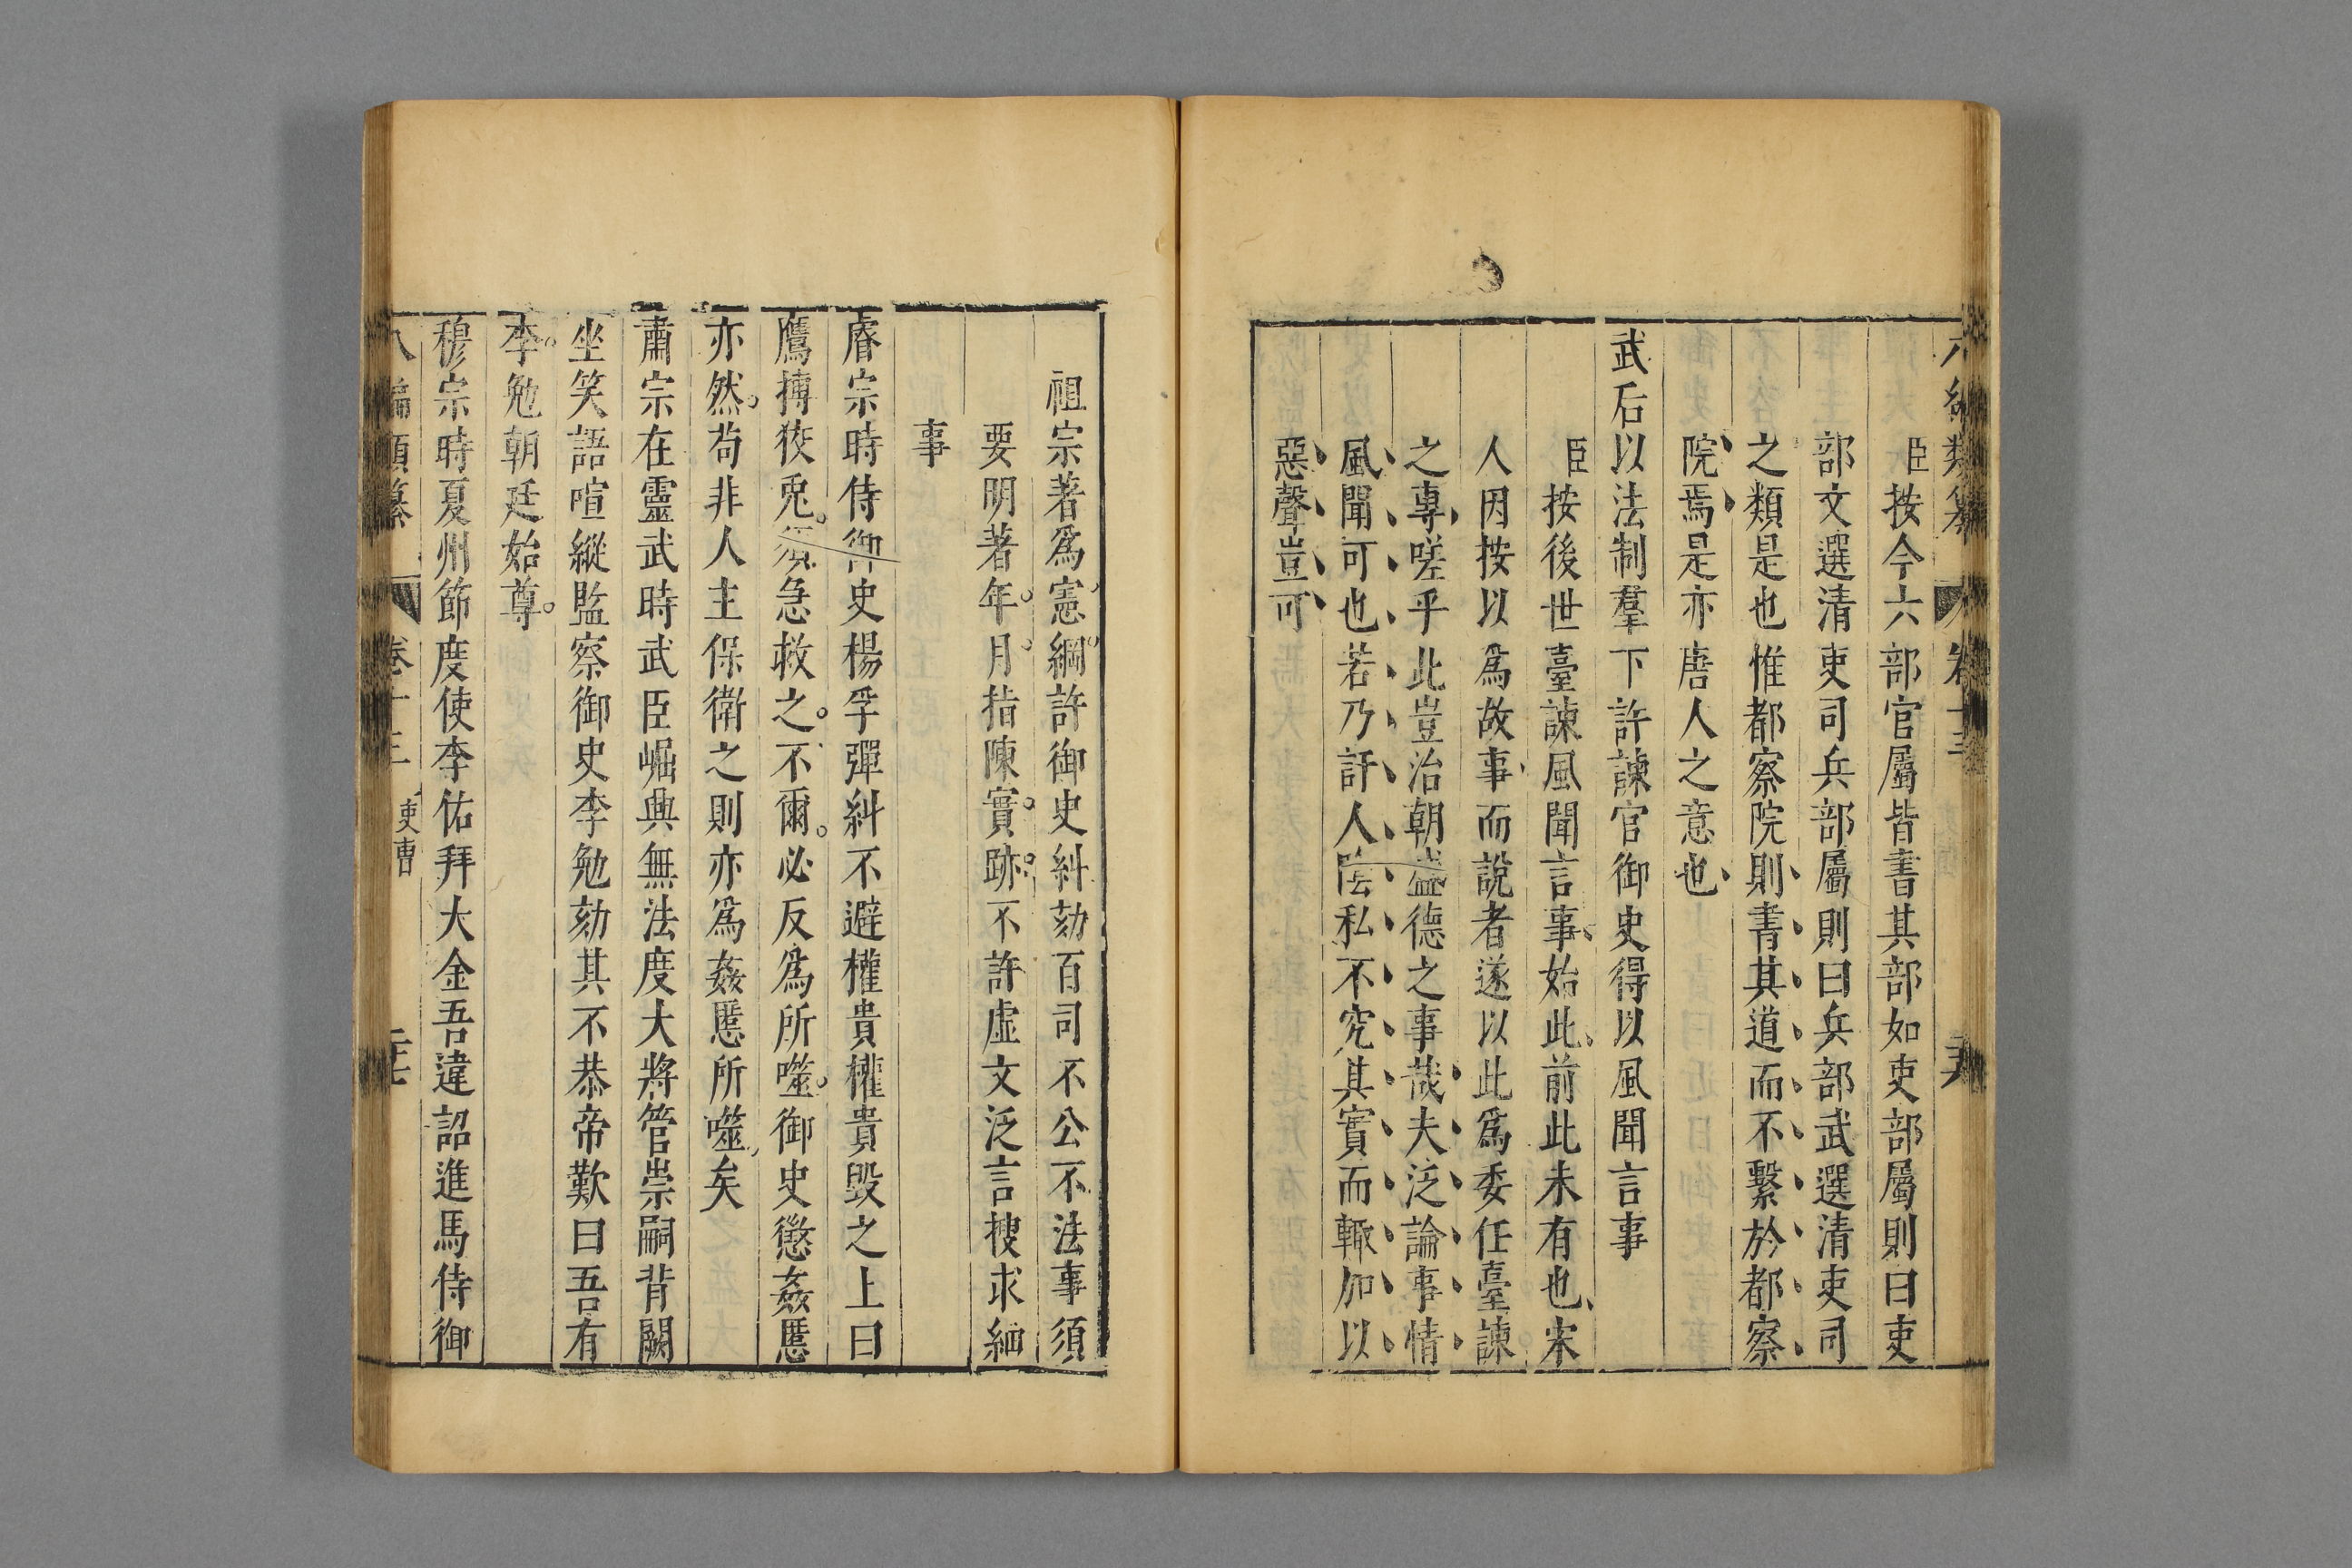 八編類纂 卷十三
臣按今六部官屬皆書其部如吏部屬則曰吏
部文選清吏司兵部屬則曰兵部武選清吏司
之類是也惟都察院則書其道而不繫於都察
院焉是亦唐人之意也
武后以法制羣下許諫官御史得以風聞言事
臣按後世臺諫風聞言事始此前此未有也宋
人因按以爲故事而說者遂以此爲委任臺諫
之專嗟乎此豈治朝盛德之事哉夫泛論事情
風聞可也若乃訐人陰私不究其實而輙加以
惡聲豈可
祖宗著爲憲綱許御史糾劾百司不公不法事須
要明著年月指陳實跡不許虛文泛言搜求細
事
睿宗時侍御史楊孚彈糾不避權貴權貴毀之上曰
鷹搏狡兎須急救之不爾必反爲所噬御史懲姦慝
亦然苟非人主保衛之則亦爲姦慝所噬矣
肅宗在靈武時武臣崛興無法度大將管崇嗣背闕
坐笑語喧縱監察御史李勉劾其不恭帝歎曰吾有
李勉朝廷始尊
穆宗時夏州節度使李佑拜大金吾違詔進馬侍御
八編類纂 卷十三 吏曹 二十七